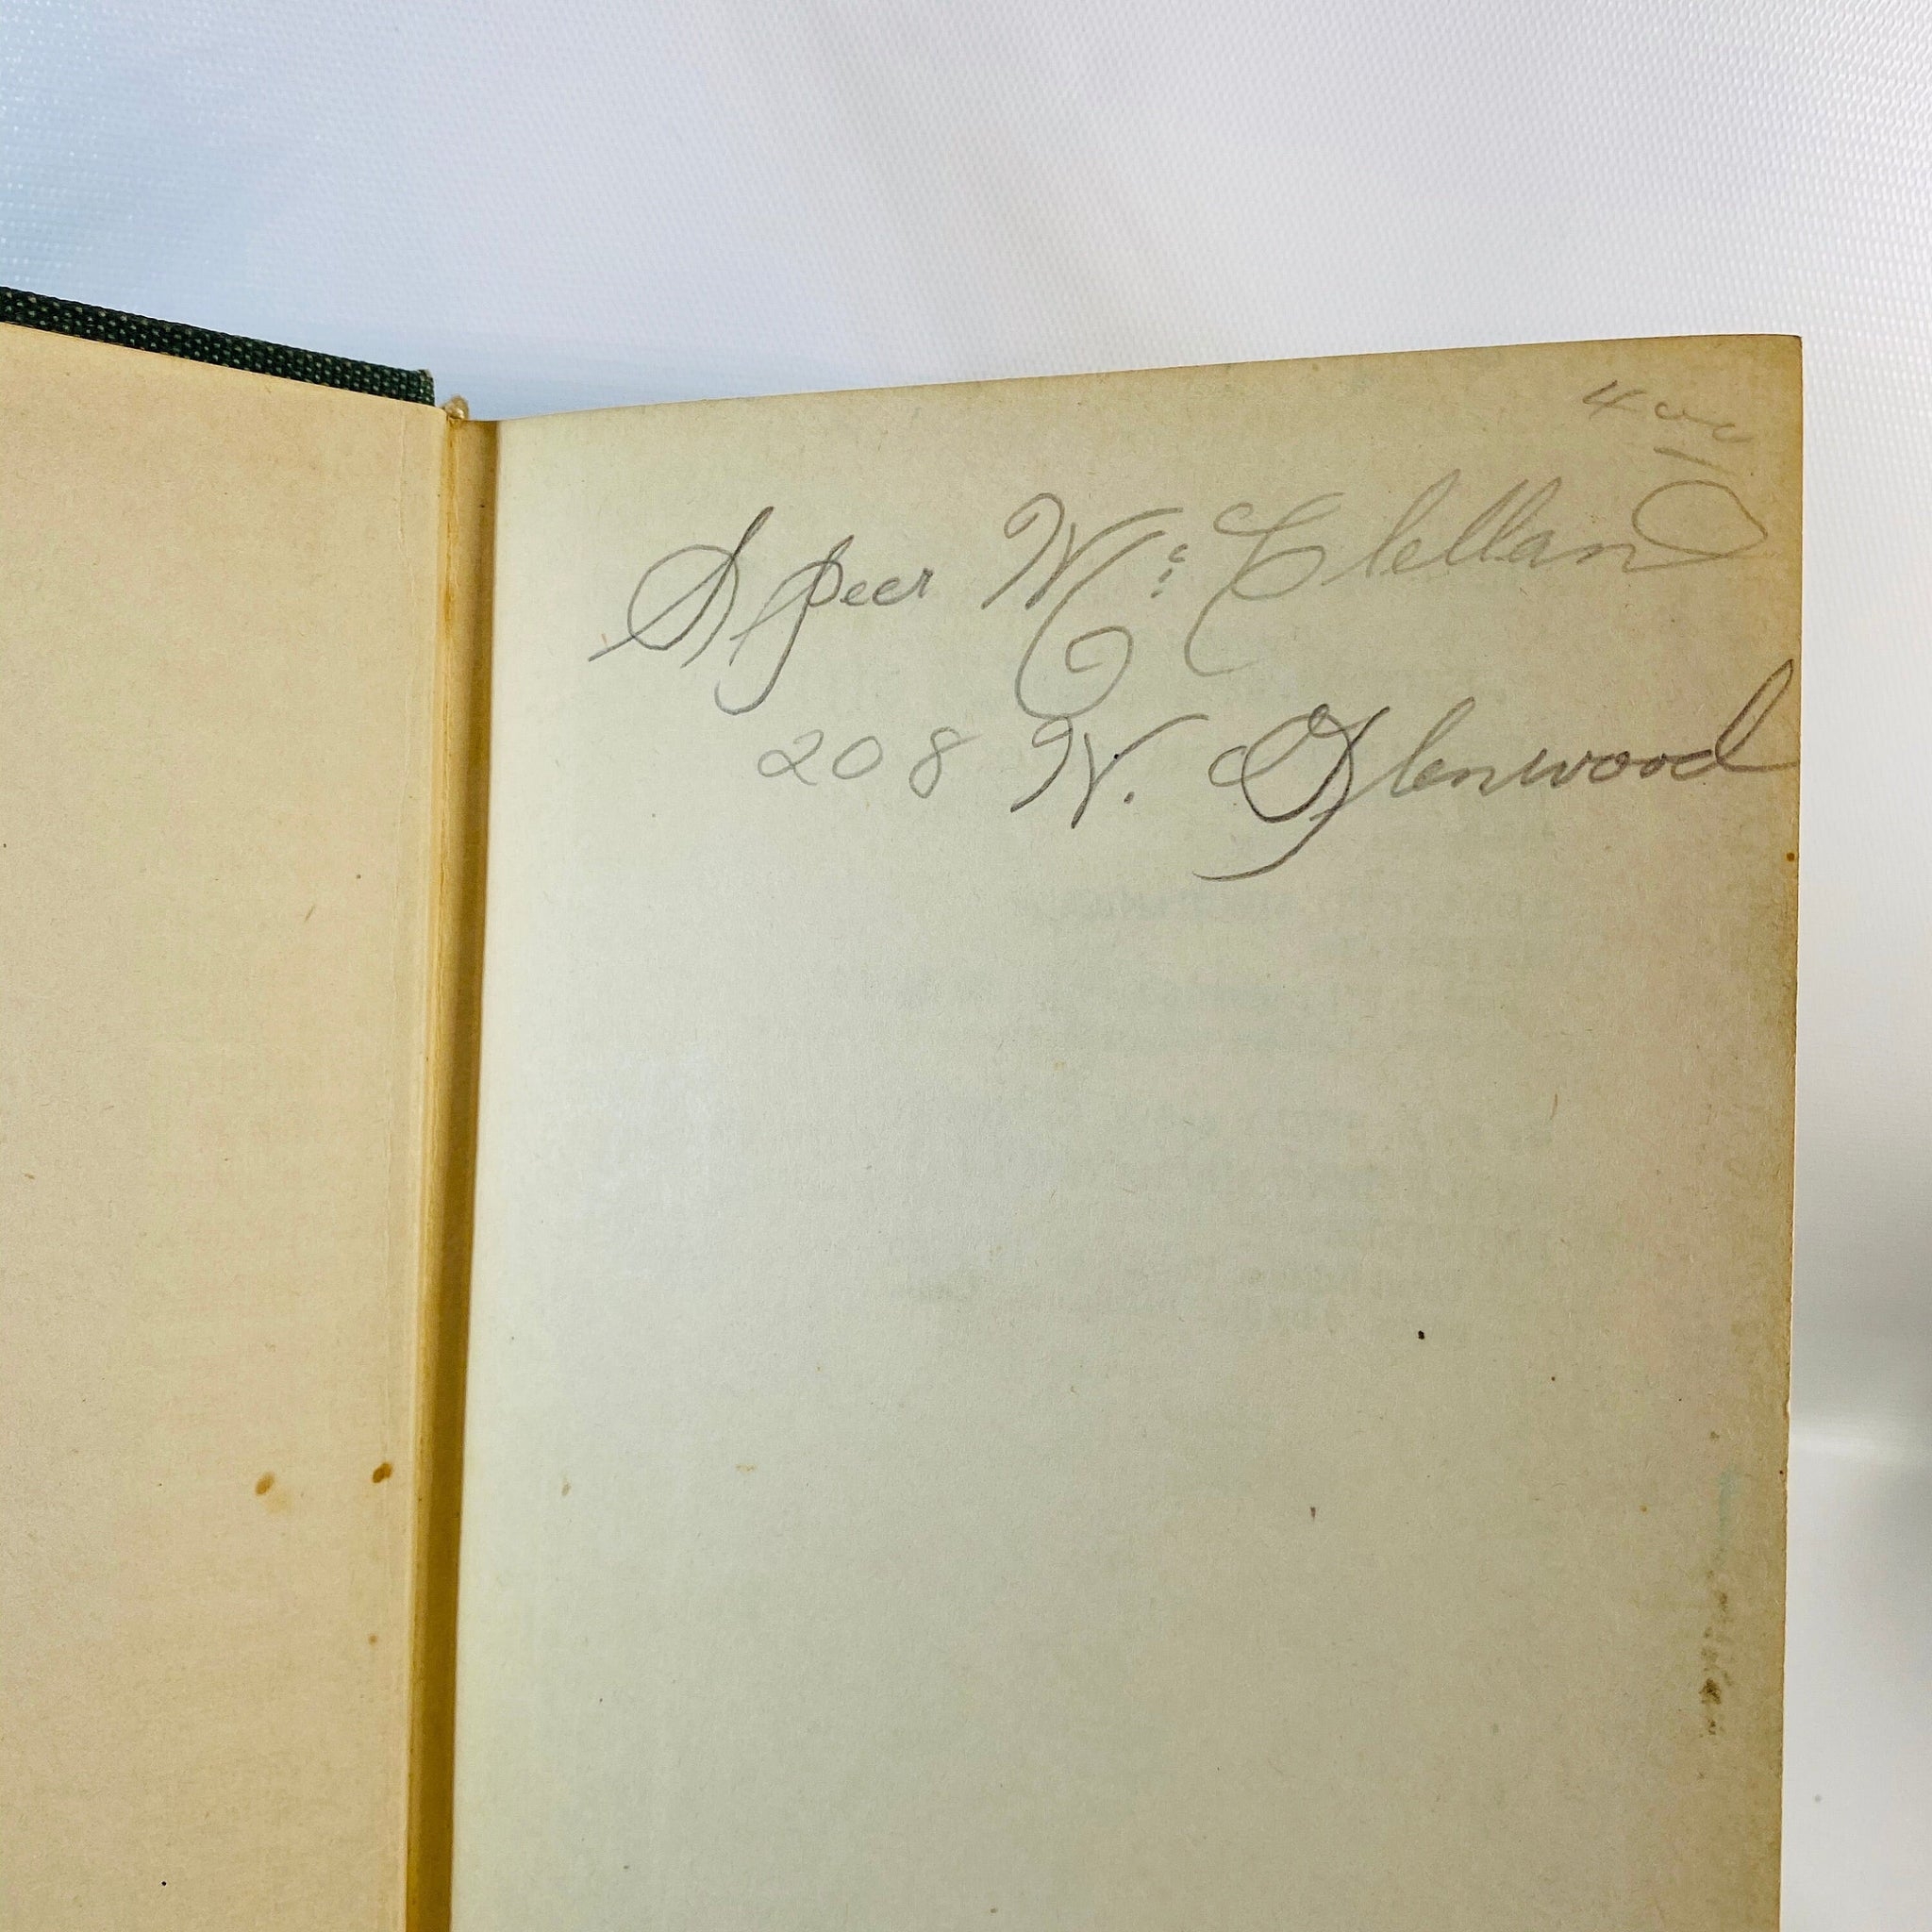 Speer Mc Clelland
208 N. Glenwood